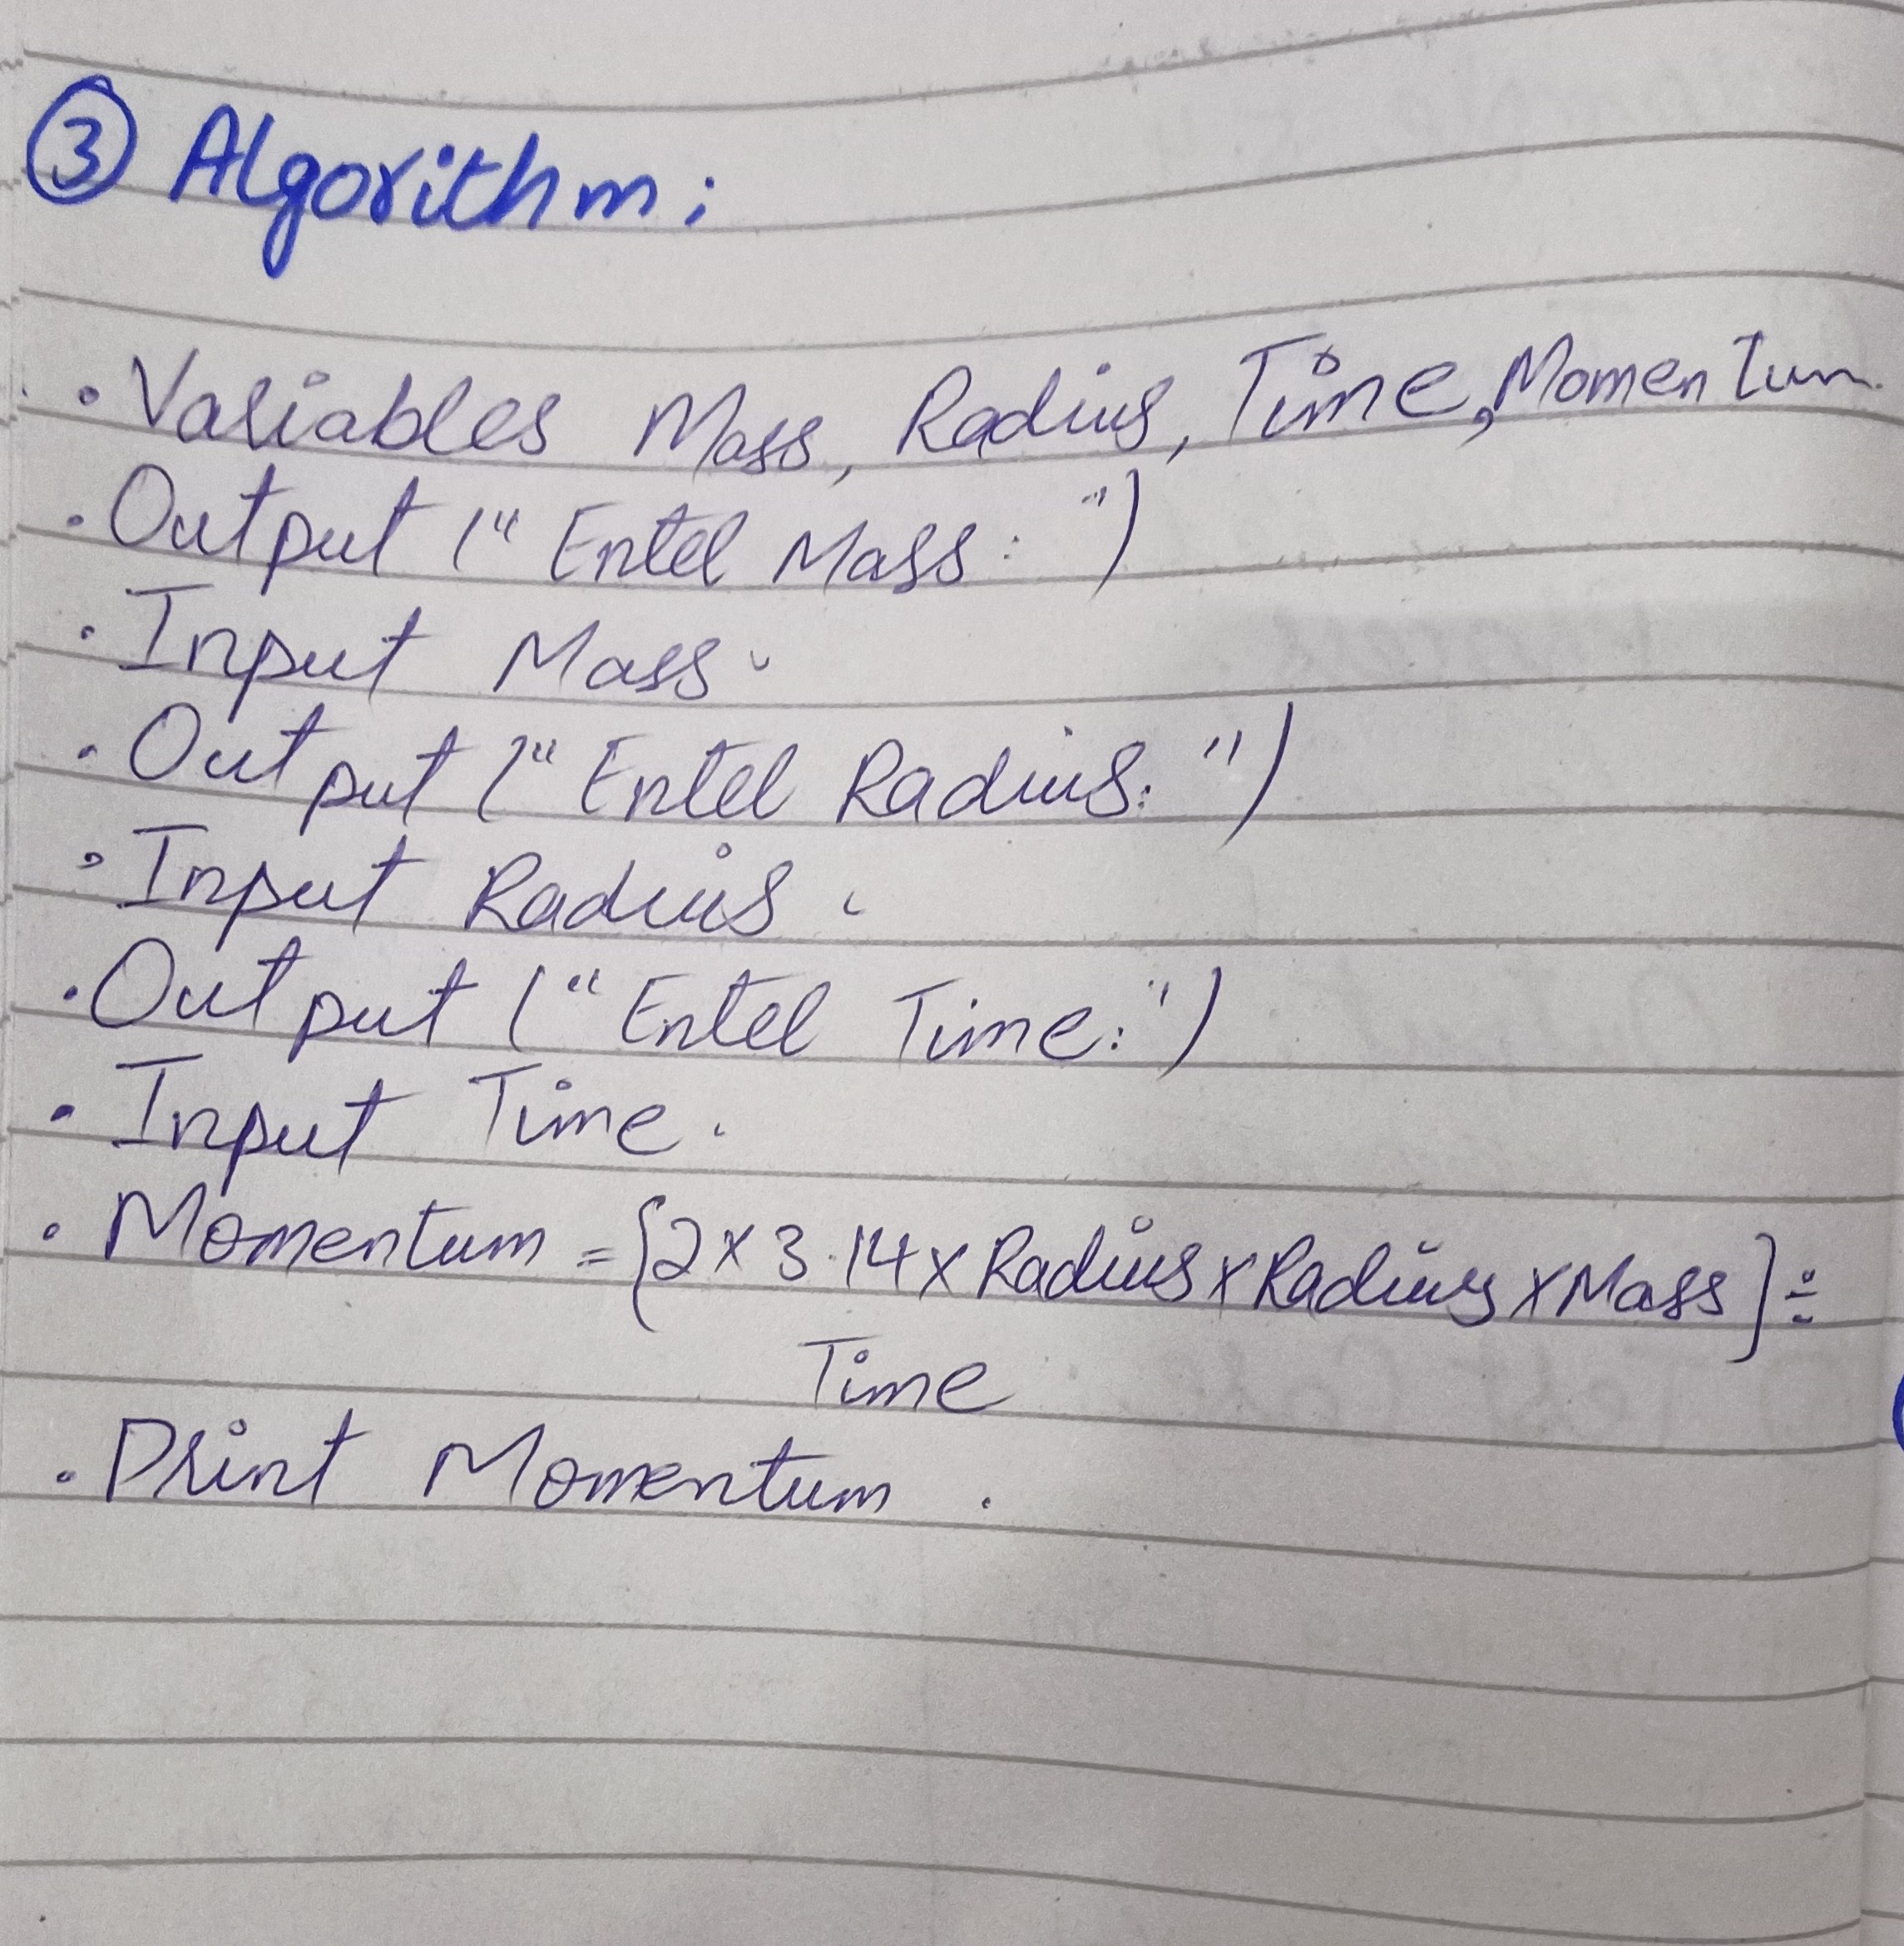 ③ Algorithm:
• Variables Mass, Radius, Time, Momentum.
• Output (" Enter Mass: ")
• Input Mass.
• Output (" Enter Radius: ")
• Input Radius.
• Output (" Enter Time: ")
• Input Time.
• Momentum = [2 × 3.14 × Radius × Radius × Mass] ÷
Time
• Print Momentum.